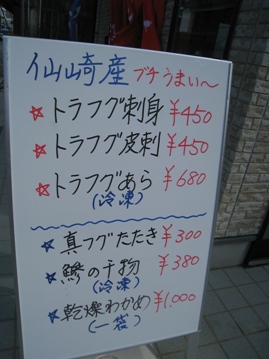 仙崎産 ブチうまい〜
☆トラフグ刺身 ¥450
☆トラフグ皮刺 ¥450
☆トラフグあら ¥680
(冷凍)
☆真フグたたき ¥300
☆鯵の干物 ¥380
(冷凍)
☆乾燥わかめ ¥1,000
(一袋)